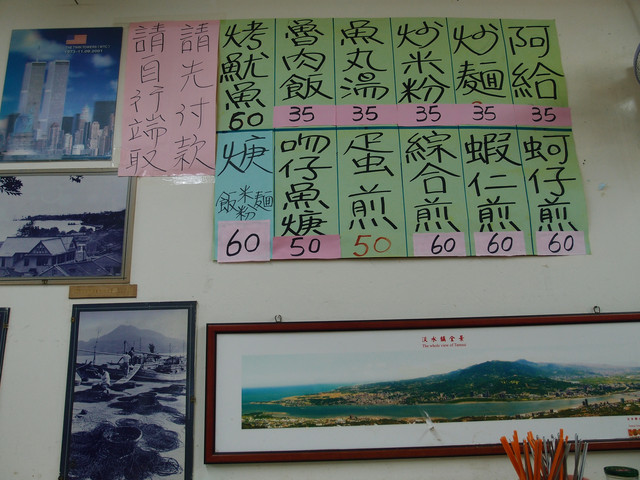 阿給
35
炒麵
35
炒米粉
35
魚丸湯
35
魯肉飯
35
烤魷魚
60
蚵仔煎
60
蝦仁煎
60
綜合煎
60
蛋煎
50
吻仔魚焿
50
焿
麵
米粉
飯
60
請先付款
請自行端取
淡水鎮全景
The whole view of Tamsui